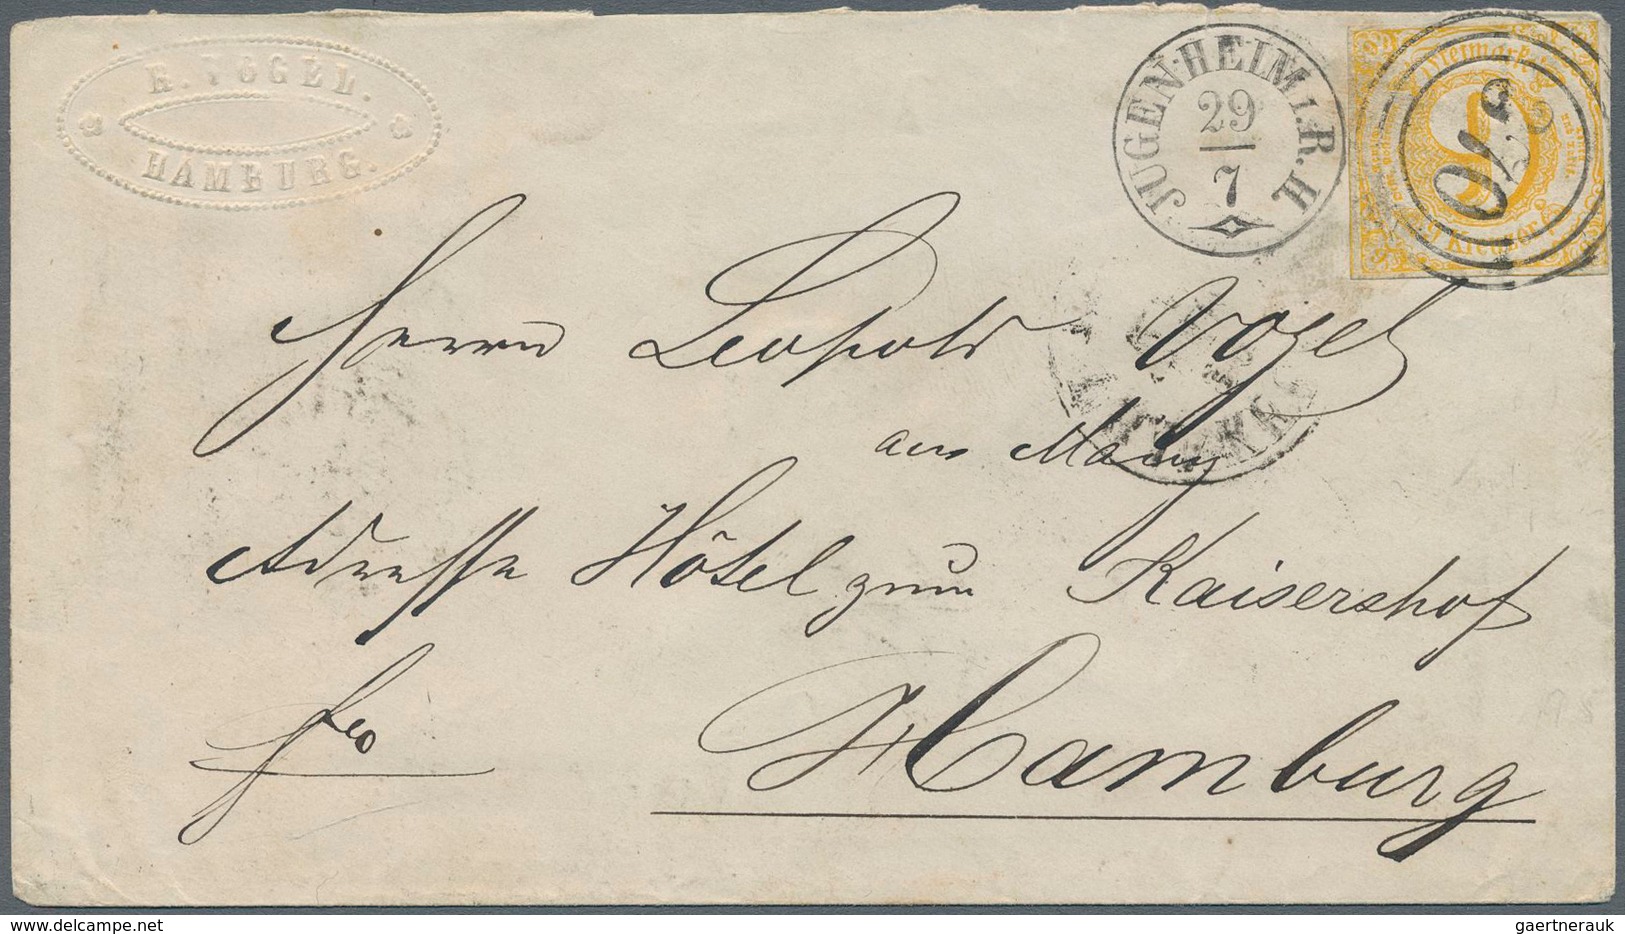 E. VOGEL.
HAMBURG.
JUGENHEIM I. R. H.
29
7
Freimarke
9
9 Kreuzer
370
Herrn Leopold Vogel
aus Mainz
Adresse Hôtel zum Kaisershof
fco
Hamburg
gaertnerauk